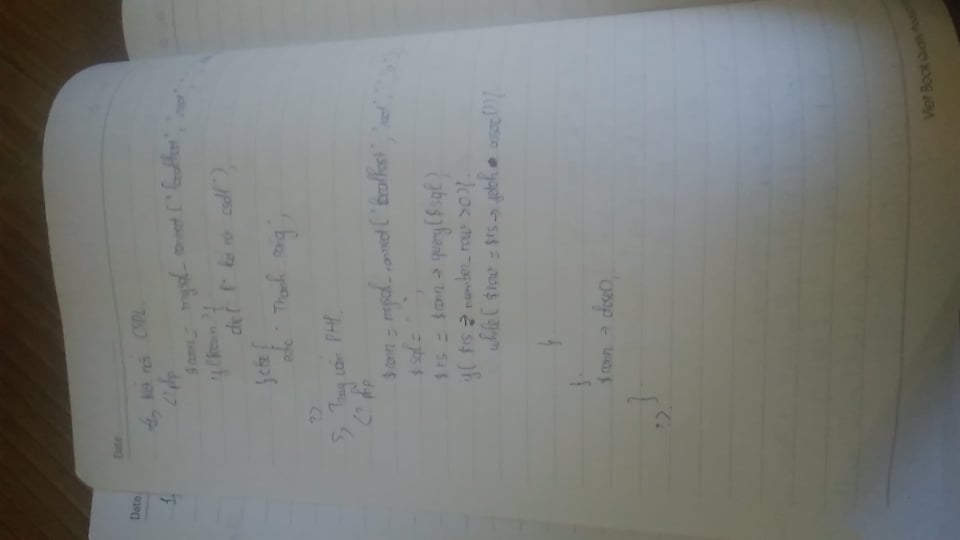 Date
Date
1,
4, Kết nối CSDL
<?php
$conn = mysql_connect("localhost", "root",
if($conn){
die(" kết nối csdl");
}else{
echo "Thành công";
?>
5, Truy vấn PHP.
<?php
$conn = mysql_connect("localhost", "root",
$sql = " ";
$rs = $conn -> query($sql)
if( $rs -> number_row >0){
while( $row = $rs -> fetch assoc()){
}
}.
$conn -> close();
}
?>
Viet Book Quality